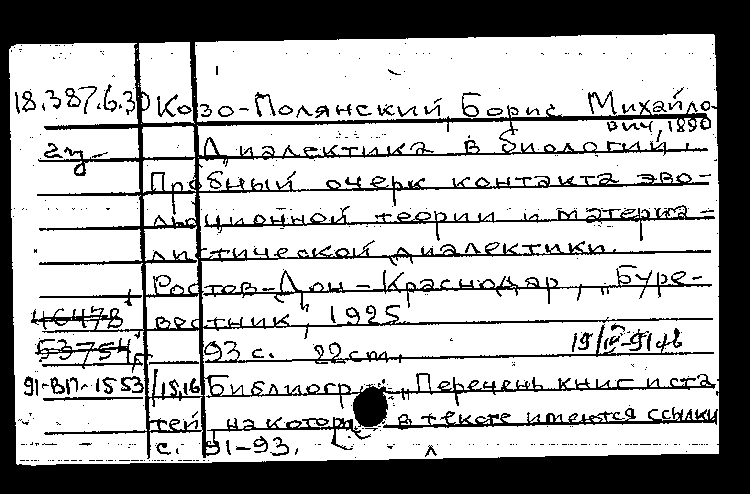 18.387.6.30 Козо-Полянский, Борис Михайло-
вич, 1890
Диалектика в биологии.
Пробный очерк контакта эво-
люционной теории и материа-
листической диалектики.
Ростов-Дон-Краснодар, „Буре-
46478 вестник", 1925
53754 93 с. 22 см.
91-ВП-1553 /15,16 Библиогр.: „Перечень книг и ста
тей, на котор в тексте имеются ссылки
с. 91-93.